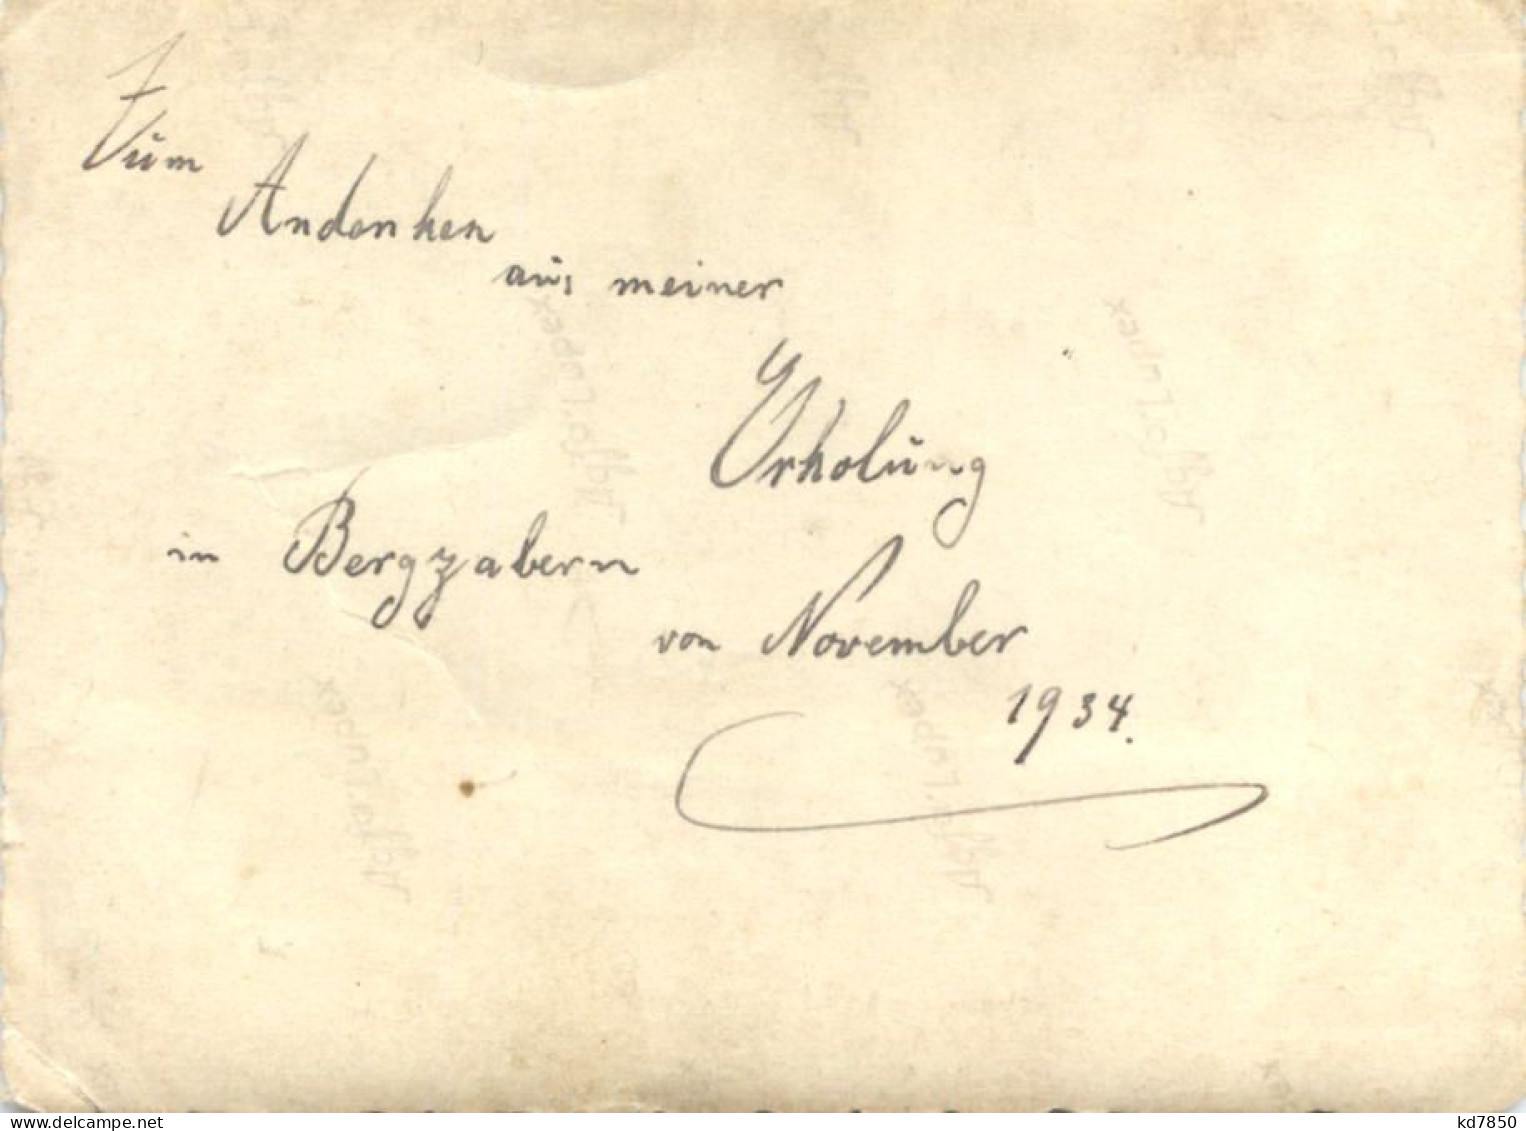 Zum
Andenken
aus meiner
Erholung
in Bergzabern
von November
1934.
Agfa Lupex
Agfa Lupex
Agfa Lupex
Agfa Lupex
kd7850